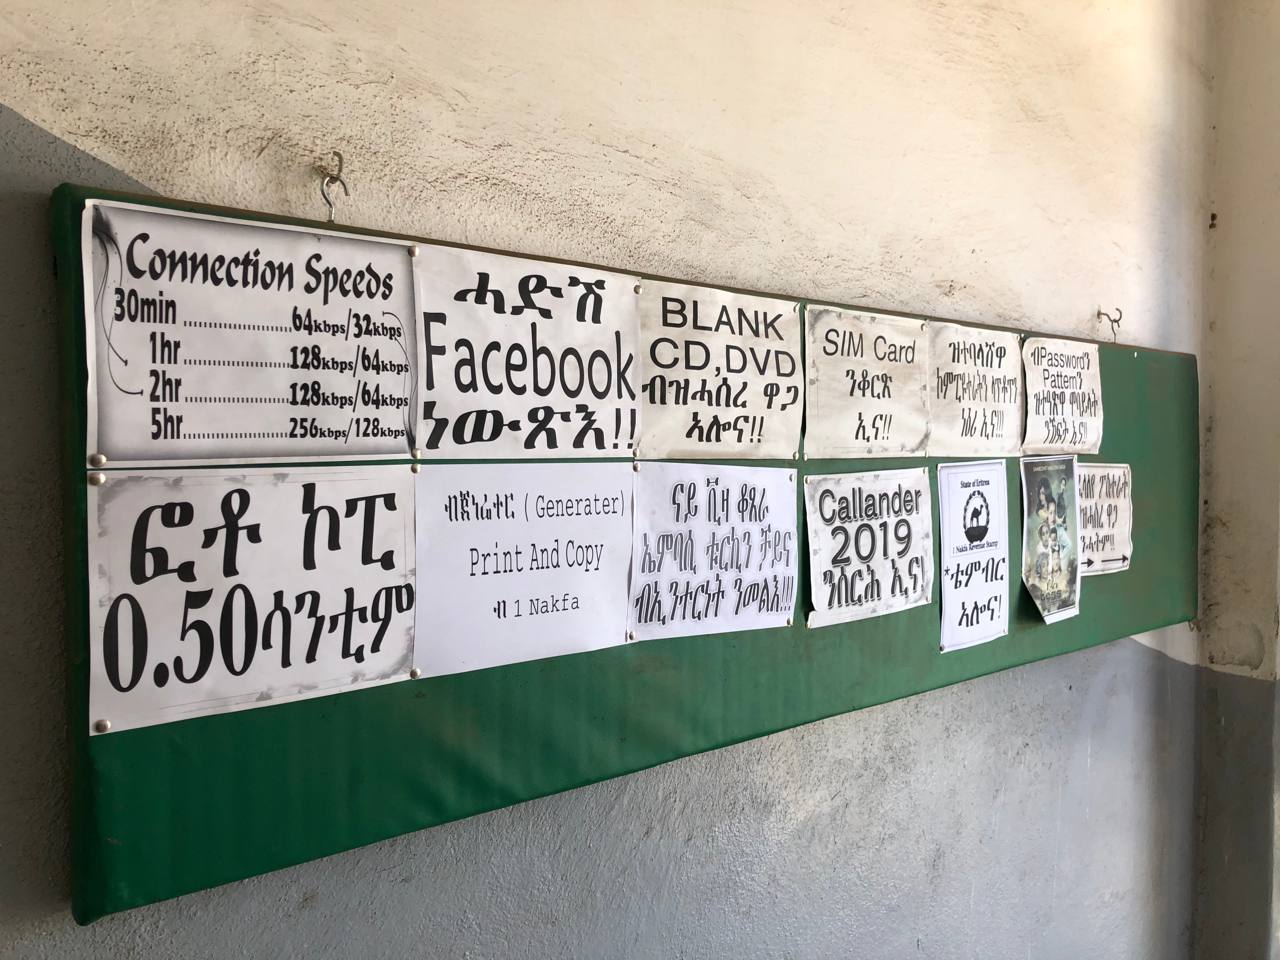 Connection Speeds
30min ........................64kbps/32kbps
1hr ........................128kbps/64kbps
2hr ........................128kbps/64kbps
5hr........................256kbps/128kbps
ሓድሽ
Facebook
ነውጽእ!!
BLANK
CD,DVD
ብዝሓሰረ ዋጋ
ኣሎና!!
SIM Card
ንቆርጽ
ኢና!!
ዝተባላሸዋ
ኮምፒተራትን ላፕቶፕን
ነዕሪ ኢና!!!
ብPasswordን
Patternን
ዝተዓጽዋ ሞባይላት
ንኸፍት ኢና!!
ፎቶ ኮፒ
0.50ሳንቲም
ብጀነሬተር (Generater)
Print And Copy
ብ 1 Nakfa
ናይ ቪዛ ቆጸራ
ኤምባሲ ቱርኪን ቻይና
ብኢንተርነት ንመልእ!!!
Callander
2019
ንሰርሕ ኢና!
State of Eritrea
1 Nakfa Revenue Stamp
*ቴምብር
ኣሎና!
ዋጋ